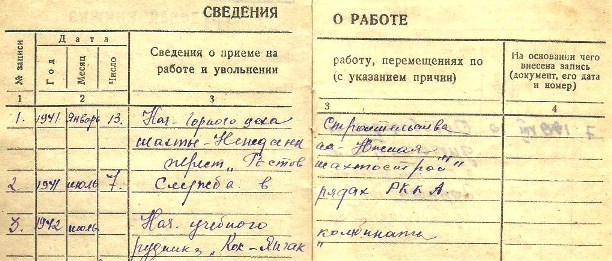 СВЕДЕНИЯ О РАБОТЕ
№ записи
Дата
Год
Месяц
Число
Сведения о приеме на работу, перемещениях по
работе и увольнении (с указанием причин)
На основании чего
внесена запись
(документ, его дата
и номер)
1 2 3 3 4
1. 1941 январь 13. Нач. горного цеха Строительства
шахты-
трест „Ростов шахтострой"
2 1941 июль 7. Служба в рядах РККА
3. 1942 июль Нач. учебного комбината
рудника „Кок-Янгак "